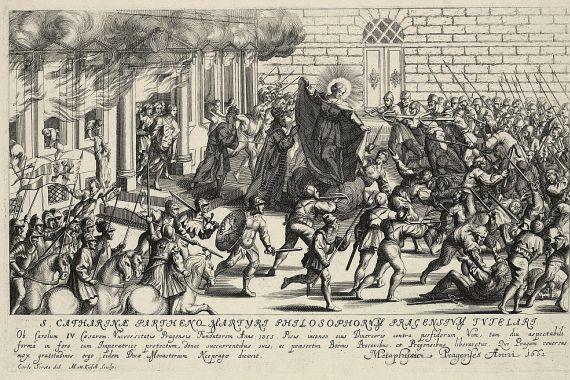 S. CATHARINÆ PARTHENO-MARTYRI PHILOSOPHORVM PRAGENSIVM TVTELARI
Ob Carolum IV Cæsarem Universitatis Pragensis Fundatorem Anno 1355. Pisis incenso eius Diversorio contra perfidorum Vim, tam diu aspectabili
formâ in foro cum Imperatrice protectum, donec succurrentibus suis, et præsertim Boëmis Proceribus et Pragensibus liberaretur. Pragam reversus
max gratitudinis ergo, eidem Divæ Monasterium Neopragæ
Metaphysici Pragenses Anni 1661
Carlo Screta del.
sculps.